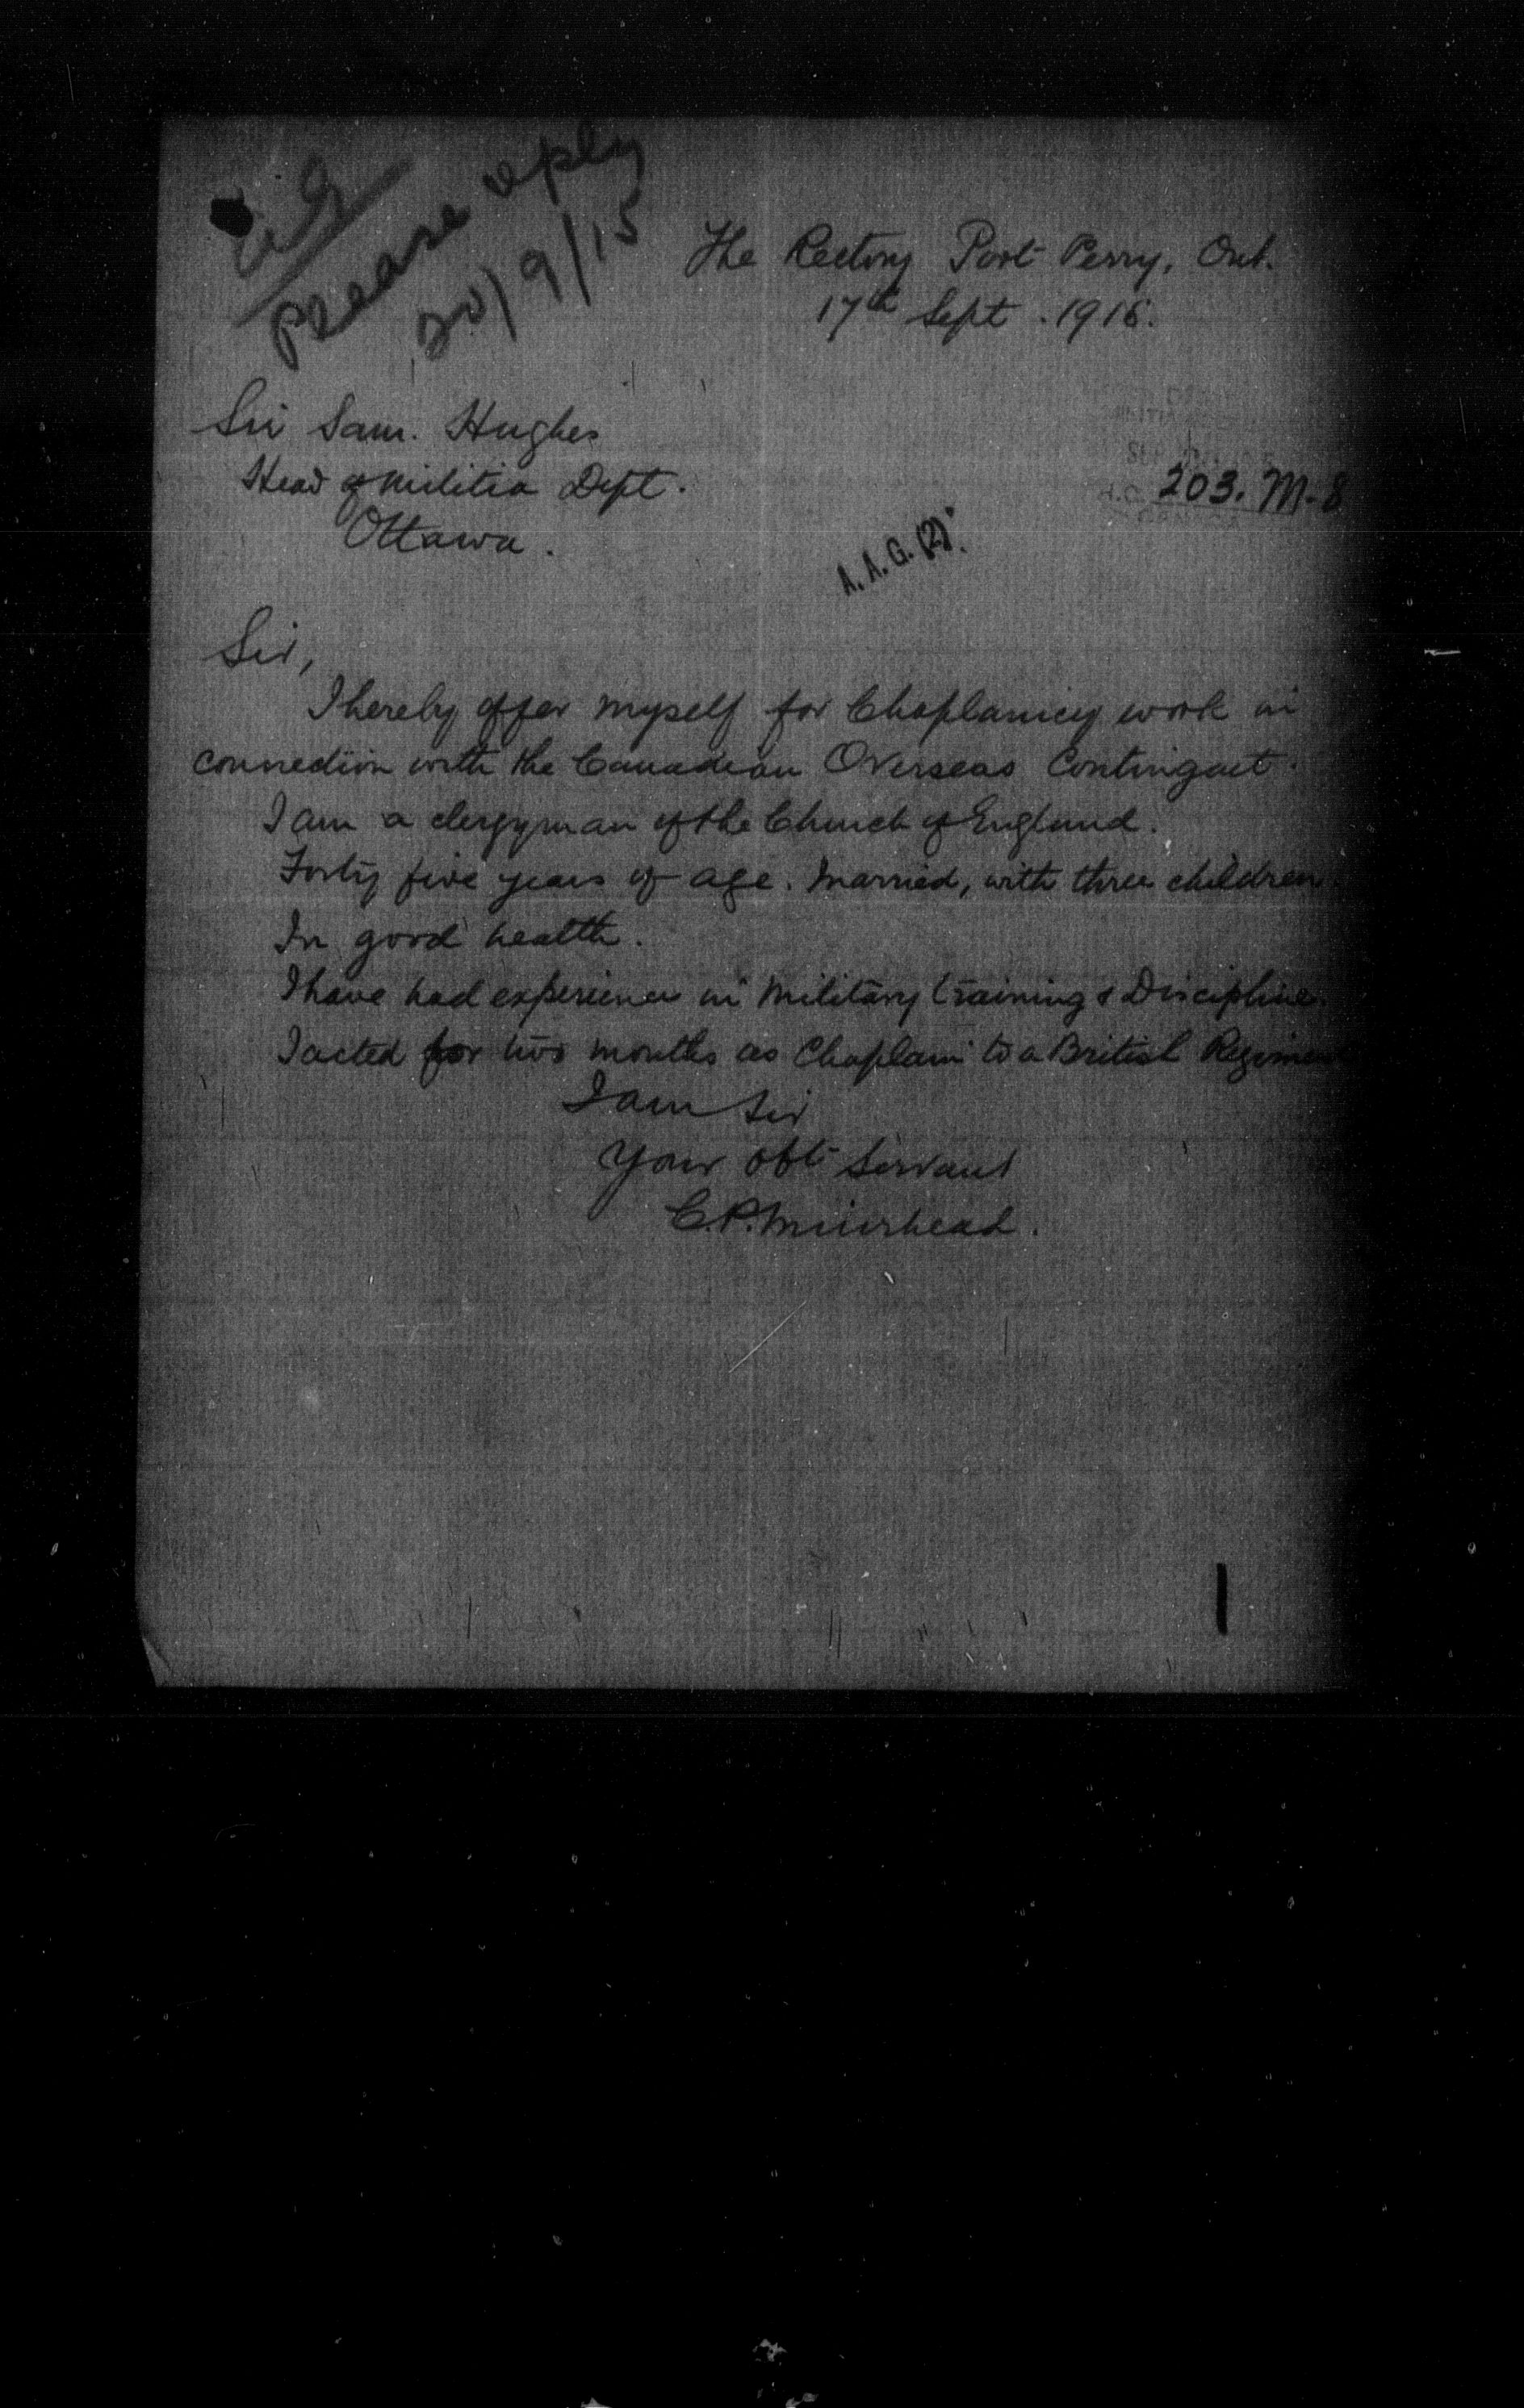 AG
Please reply
20/9/15
The Rectory Port Perry, Ont.
17th Sept. 1915.
Sir Sam. Hughes
Head of Militia Dept.
Ottawa.
203. M-8
A. A. G. (2).
Sir,
I hereby offer myself for Chaplaincy work in
connection with the Canadian Overseas Contingent.
I am a clergyman of the Church of England.
Forty five years of age. Married, with three children.
In good health.
I have had experience in Military training & Discipline.
I acted for two months as Chaplain to a British Regiment
I am Sir
Your Obt Servant
C.P. Muirhead.